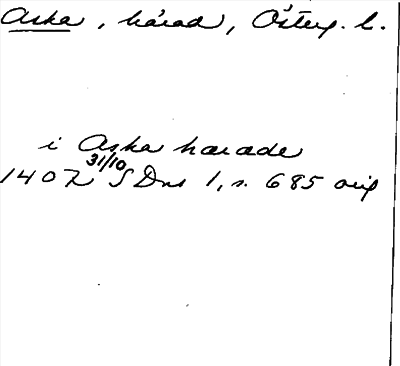 Aska, härad, Österg. l.
i Aska harade
31/10
1407 SDns 1, s. 685 orig